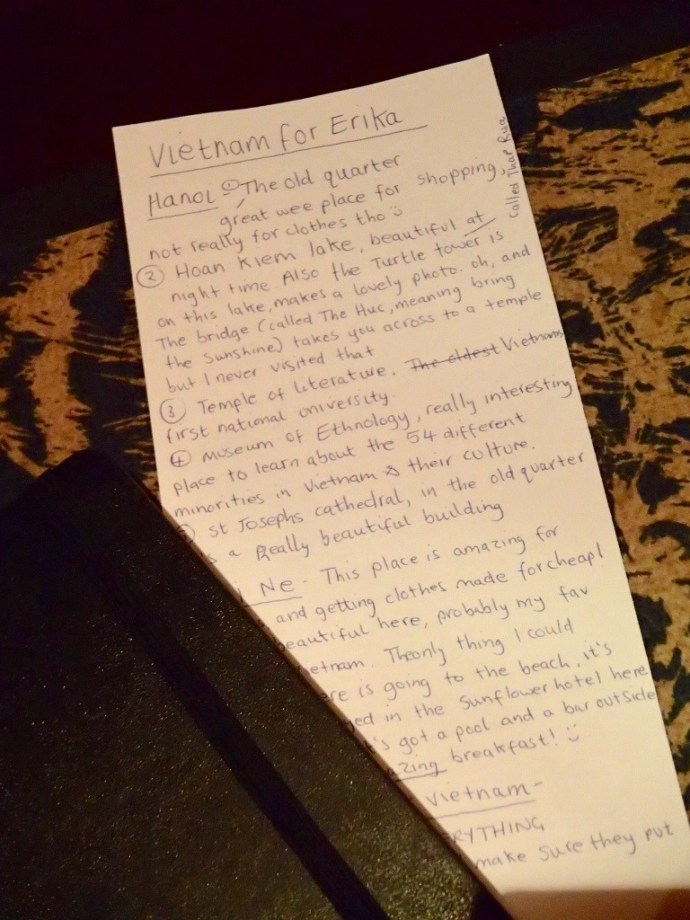 Vietnam for Erika
Hanoi - ① The old quarter
great wee place for shopping,
not really for clothes tho
② Hoan Kiem lake, beautiful at
night time. Also the Turtle tower is
called Thap Rua
on this lake, makes a lovely photo. oh, and
The bridge (called The Huc, meaning bring
the sunshine) takes you across to a temple
but I never visited that
③ Temple of literature. The oldest Vietnams
first national university.
④ Museum of Ethnology, really interesting
place to learn about the 54 different
minorities in Vietnam & their culture.
St Josephs cathedral, in the old quarter
a Really beautiful building
Ne - This place is amazing for
and getting clothes made for cheap!
beautiful here, probably my fav
etnam. The only thing I could
re is going to the beach, it's
ed in the Sunflower hotel here
's got a pool and a bar outside
azing breakfast!
Vietnam -
RYTHING
make sure they put